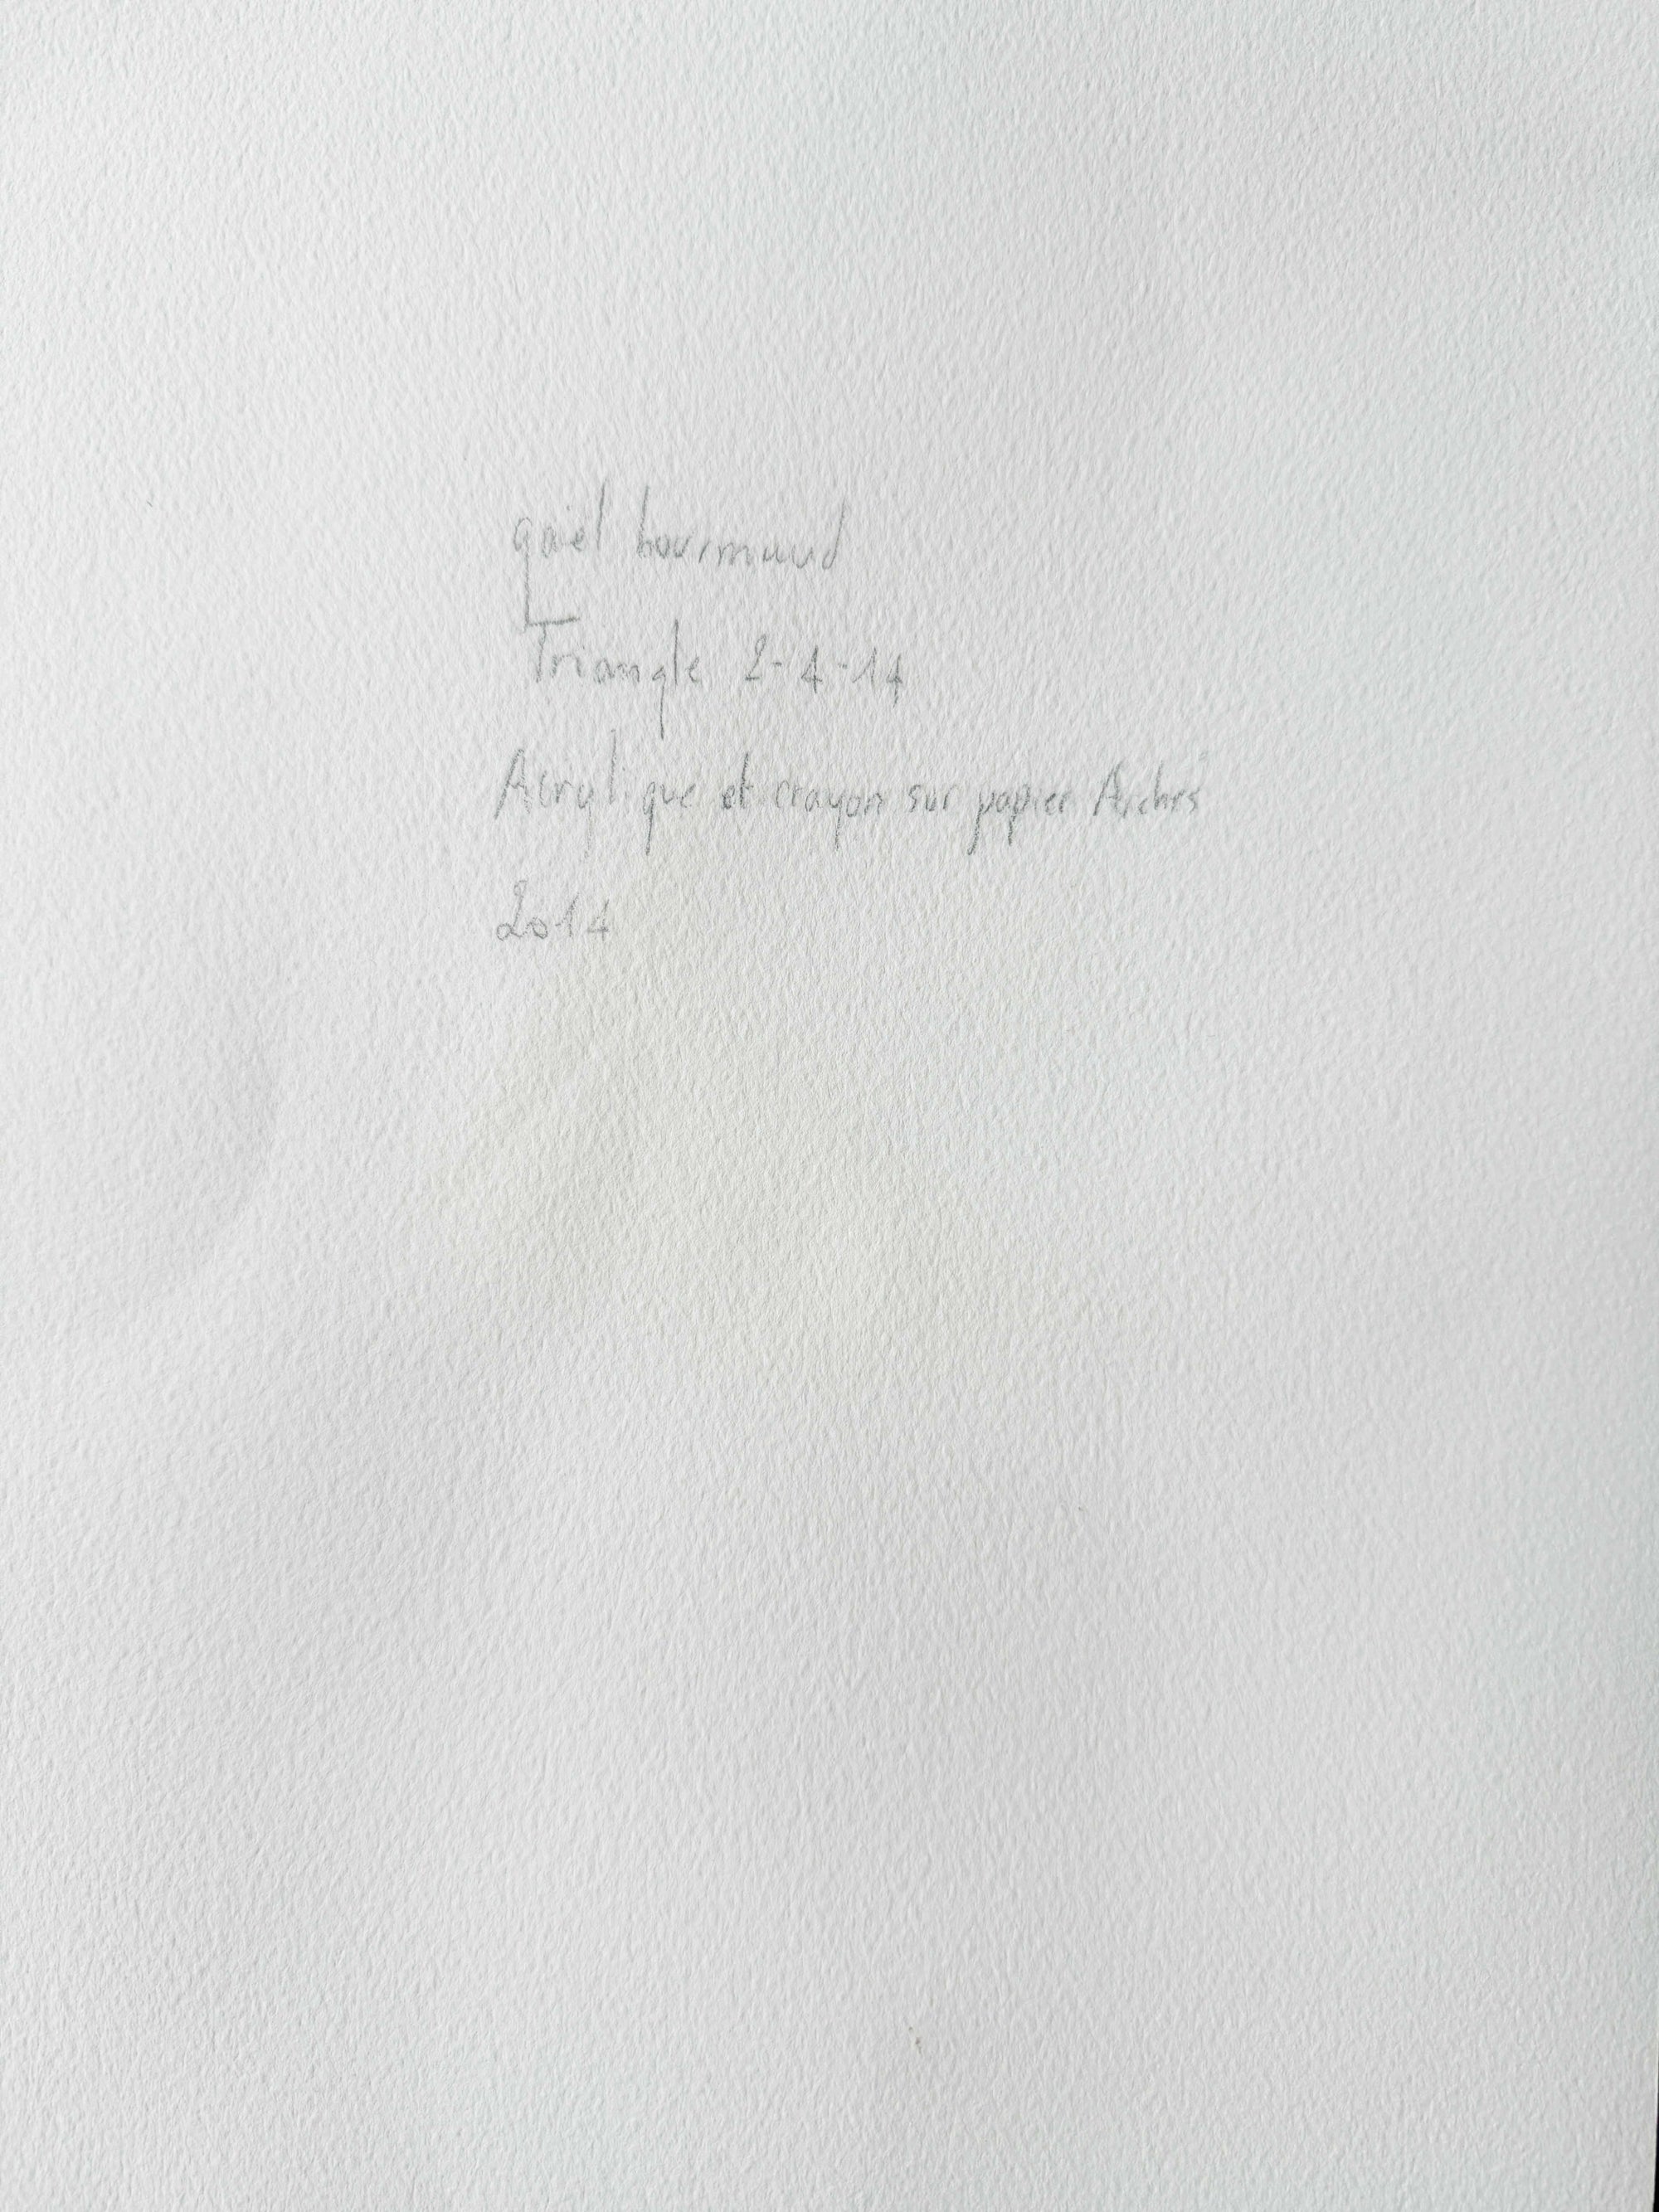 gaël bourmaud
Triangle 2-4-14
Acrylique et crayon sur papier Arches
2014